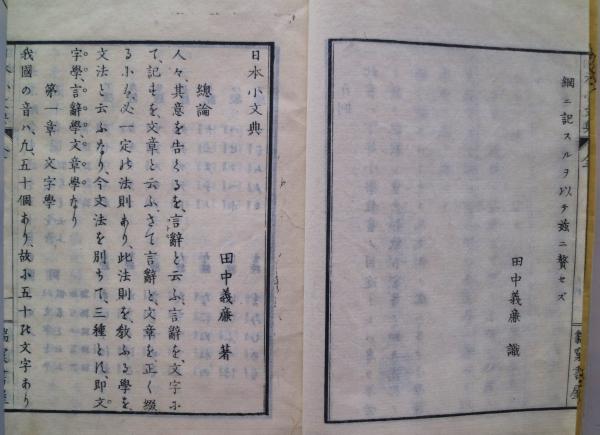 細ニ記スルヲ以テ玆ニ贅セズ
田中義廉 識
日本小文典
田中義廉 著
總論
人々、其意を告くるを、言辭と云ふ、言辭を、文字小
て、記しを、文章と云ふ、さて言辭と、文章を正く綴
る小も、必一定比法則あり、此法則を敎ふる學を、
文法と云ふなり、今文法を別ちて、三種とれ、即文
文字學、言辭學、文章學なり
第一章 文字學
我國の音ハ、凡五十個あり、故小五十比文字あり